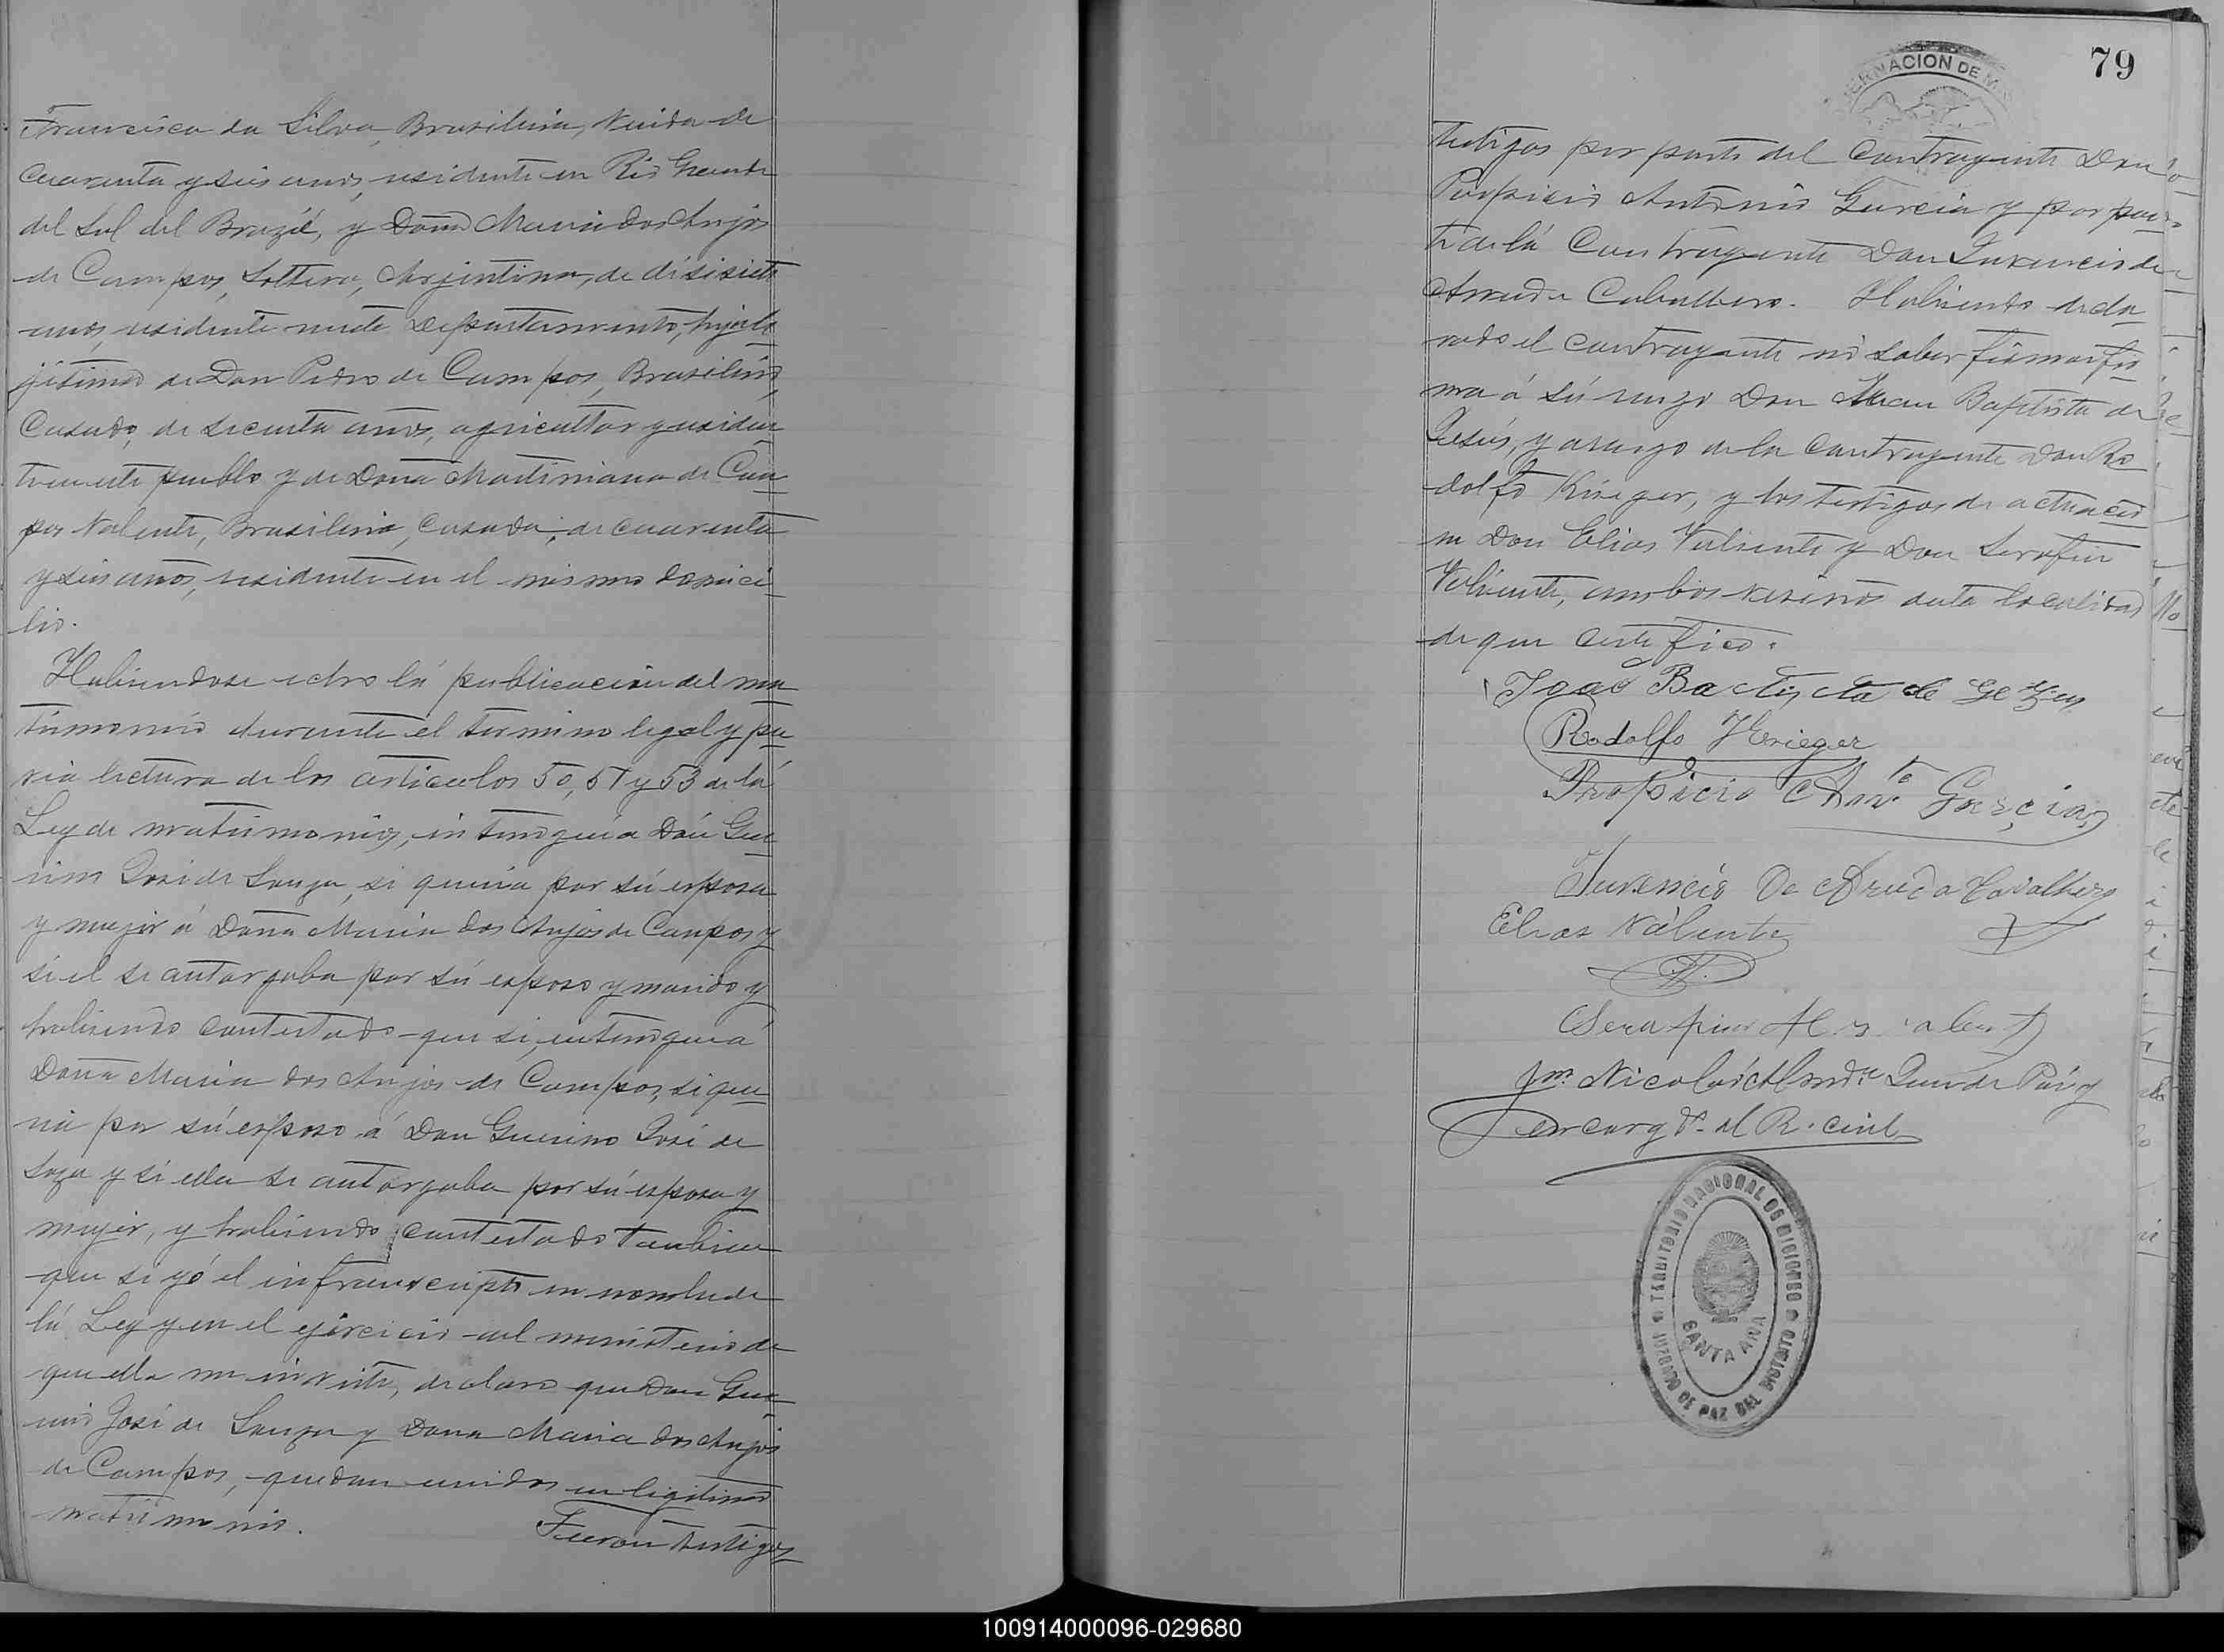 Francisca da Silva, Brasilera, Viuda de
cuarenta y seis anos, residente en Rio Grande
del Sul del Brazil, y Doña Maria dos Anjos
de Campos, Soltera, Arjentina, de disisiete
anos, residente neste Departamento, hija le
jitima de Don Pedro de Campos, Brasilero,
Casado, de secenta anos, agricultor y residen
te en este pueblo y de Doña Martiniana de Cam
pos Valente, Brasilera, Casada, de cuarenta
y seis anos, residente en el mismo domici
lio.
Habiendose echo lá publicacion del ma
trimonio durante el termino legal y pre
via lectura de los articulos 50, 51 y 53 de lá
Ley de matrimonio, interoguéa Don Gue
rino José de Souza, si queria por sú esposa
y mujer á Doña Maria dos Anjos de Campos y
si el se autorgaba por sú esposo y marido y
habiendo contestado que si, interogué á
Doña Maria dos Anjos de Campos, si que
ria por sú esposo á Don Guerino José de
Soza y si ella se autorgaba por sú esposa y
mujer, y habiendo contestado tambien
que si yó el infranscripto en nombre de
lá Ley y en el ejercicio del ministerio de
que ella me inviste, declaro que Don Gue
rino José de Souza y Dona Maria dos Anjos
de Campos, quedan unidos en legitimo
matrimonio.
Fueron testigos
79
testigos por parte del Contrayente Don
Propicio Antonio Garcia y por par
te de lá Contrayente Don Juvencio de
Arruda Caballero. Habiendo decla
rado el contrayente nó saber firmar fir
ma á sú ruego Don Juan Baptista de
Jesús, y aruego de la contrayente Don Ro
dolfo Krieger, y los testigos de actuació
n Don Elias Valiente y Don Serafin
Valiente, ambos vesinos deste localidad
de que certifico.
Joao Bactiscta de Gezus
Rodolfo Krieger
Propicio Anto. Garcia
Juvencio de Arruda Cavalhero
Elias Valente
Serapim
Nicolás
encargdo. del R. civil
TERRITORIO NACIONAL DE MISIONES
SANTA ANA
JUZGADO DE PAZ DEL DISTRITO
100914000096-029680